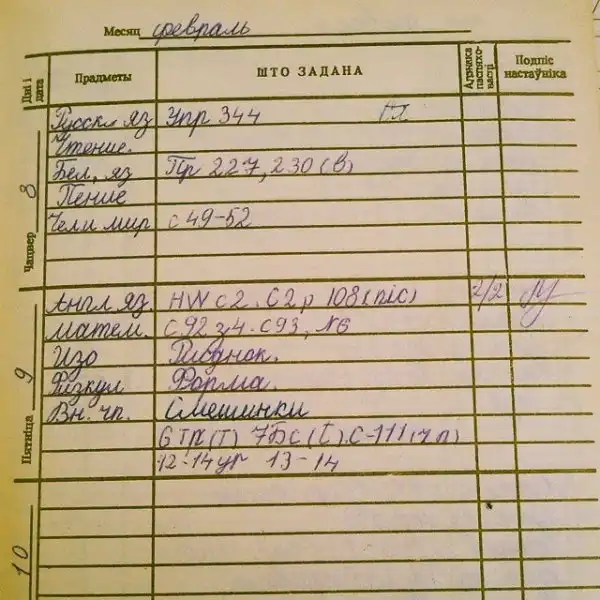 Месяц февраль
Дні і дата Прадметы ШТО ЗАДАНА Адзнака паспяхо- васці Подпіс настаўніка
Чацвер 8
Русск. яз Упр 344
Чтение.
Бел. яз Пр 227, 230 (в)
Пение
Чел и мир с 49-52
Пятніца 9
Англ яз. HW с 2. с 2 р 108 (піс) 2/2
Матем. с 92 з 4. с 93, №6
Изо Рисунок.
Физкул Форма.
Вн. чт. Смешинки
с-111
13-14
10